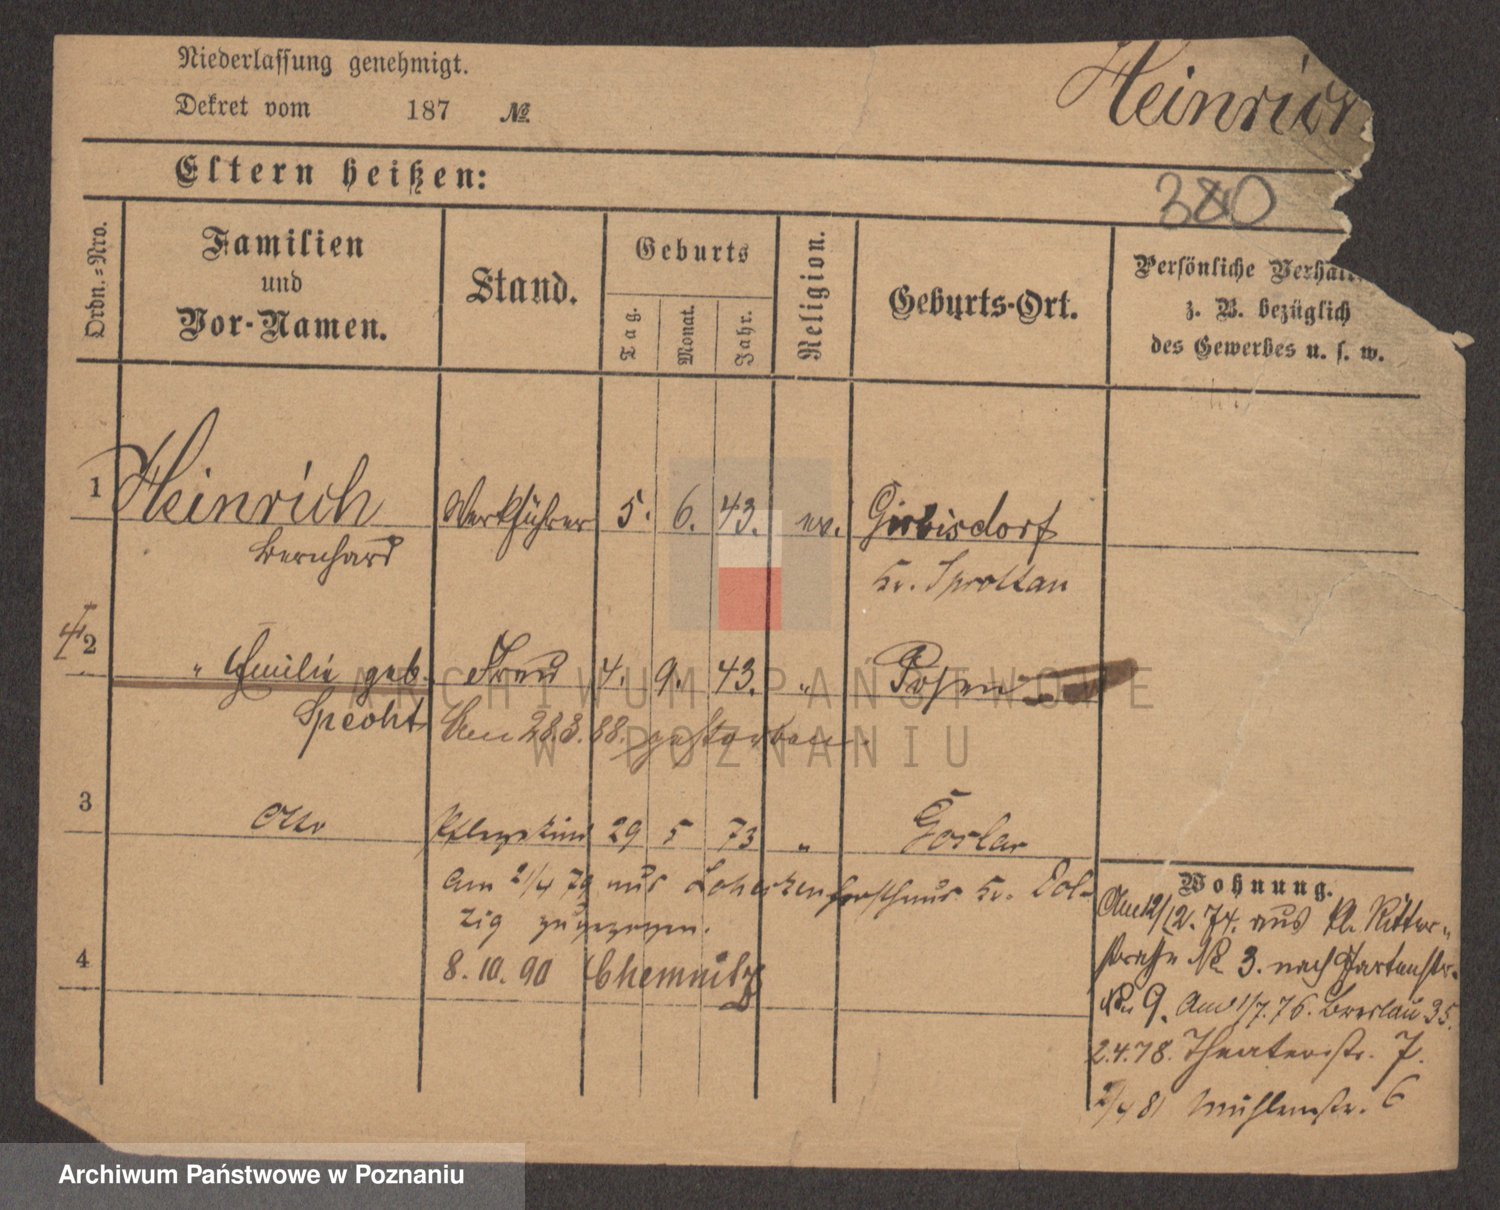 Niederlassung genehmigt.
Dekret vom 187 №
Heinrich
Eltern heißen:
380
Ordn.=Nro.
Familien
und
Vor-Namen.
Stand.
Geburts
Tag.
Monat.
Jahr.
Religion.
Geburts-Ort.
Persönliche Verhält
z. B. bezüglich
des Gewerbes u. s. w.
1 Heinrich Werkführer 5. 6. 43. ev. Girbisdorf
Bernhard Kr. Sprottau
2 " Emilie geb. Frau 4. 9. 43. " Posen
Specht Am 28.3.88. gestorben.
3 Otto Pflegekind 29 5 73 " Goslar
Am 21/4 79 aus Forsthaus Kr. Dol-
zig zugezogen.
4 8.10.90 Chemnitz
Wohnung.
Am 12/12.74. aus Kl. Ritter-
straße № 3. nach Gartenstr.
No 9. Am 1/7.76. Breslau 35.
2.4.78. Theaterstr. 7.
2/4 81 Mühlenstr. 6
ARCHIWUM PAŃSTWOWE
W POZNANIU
Archiwum Państwowe w Poznaniu